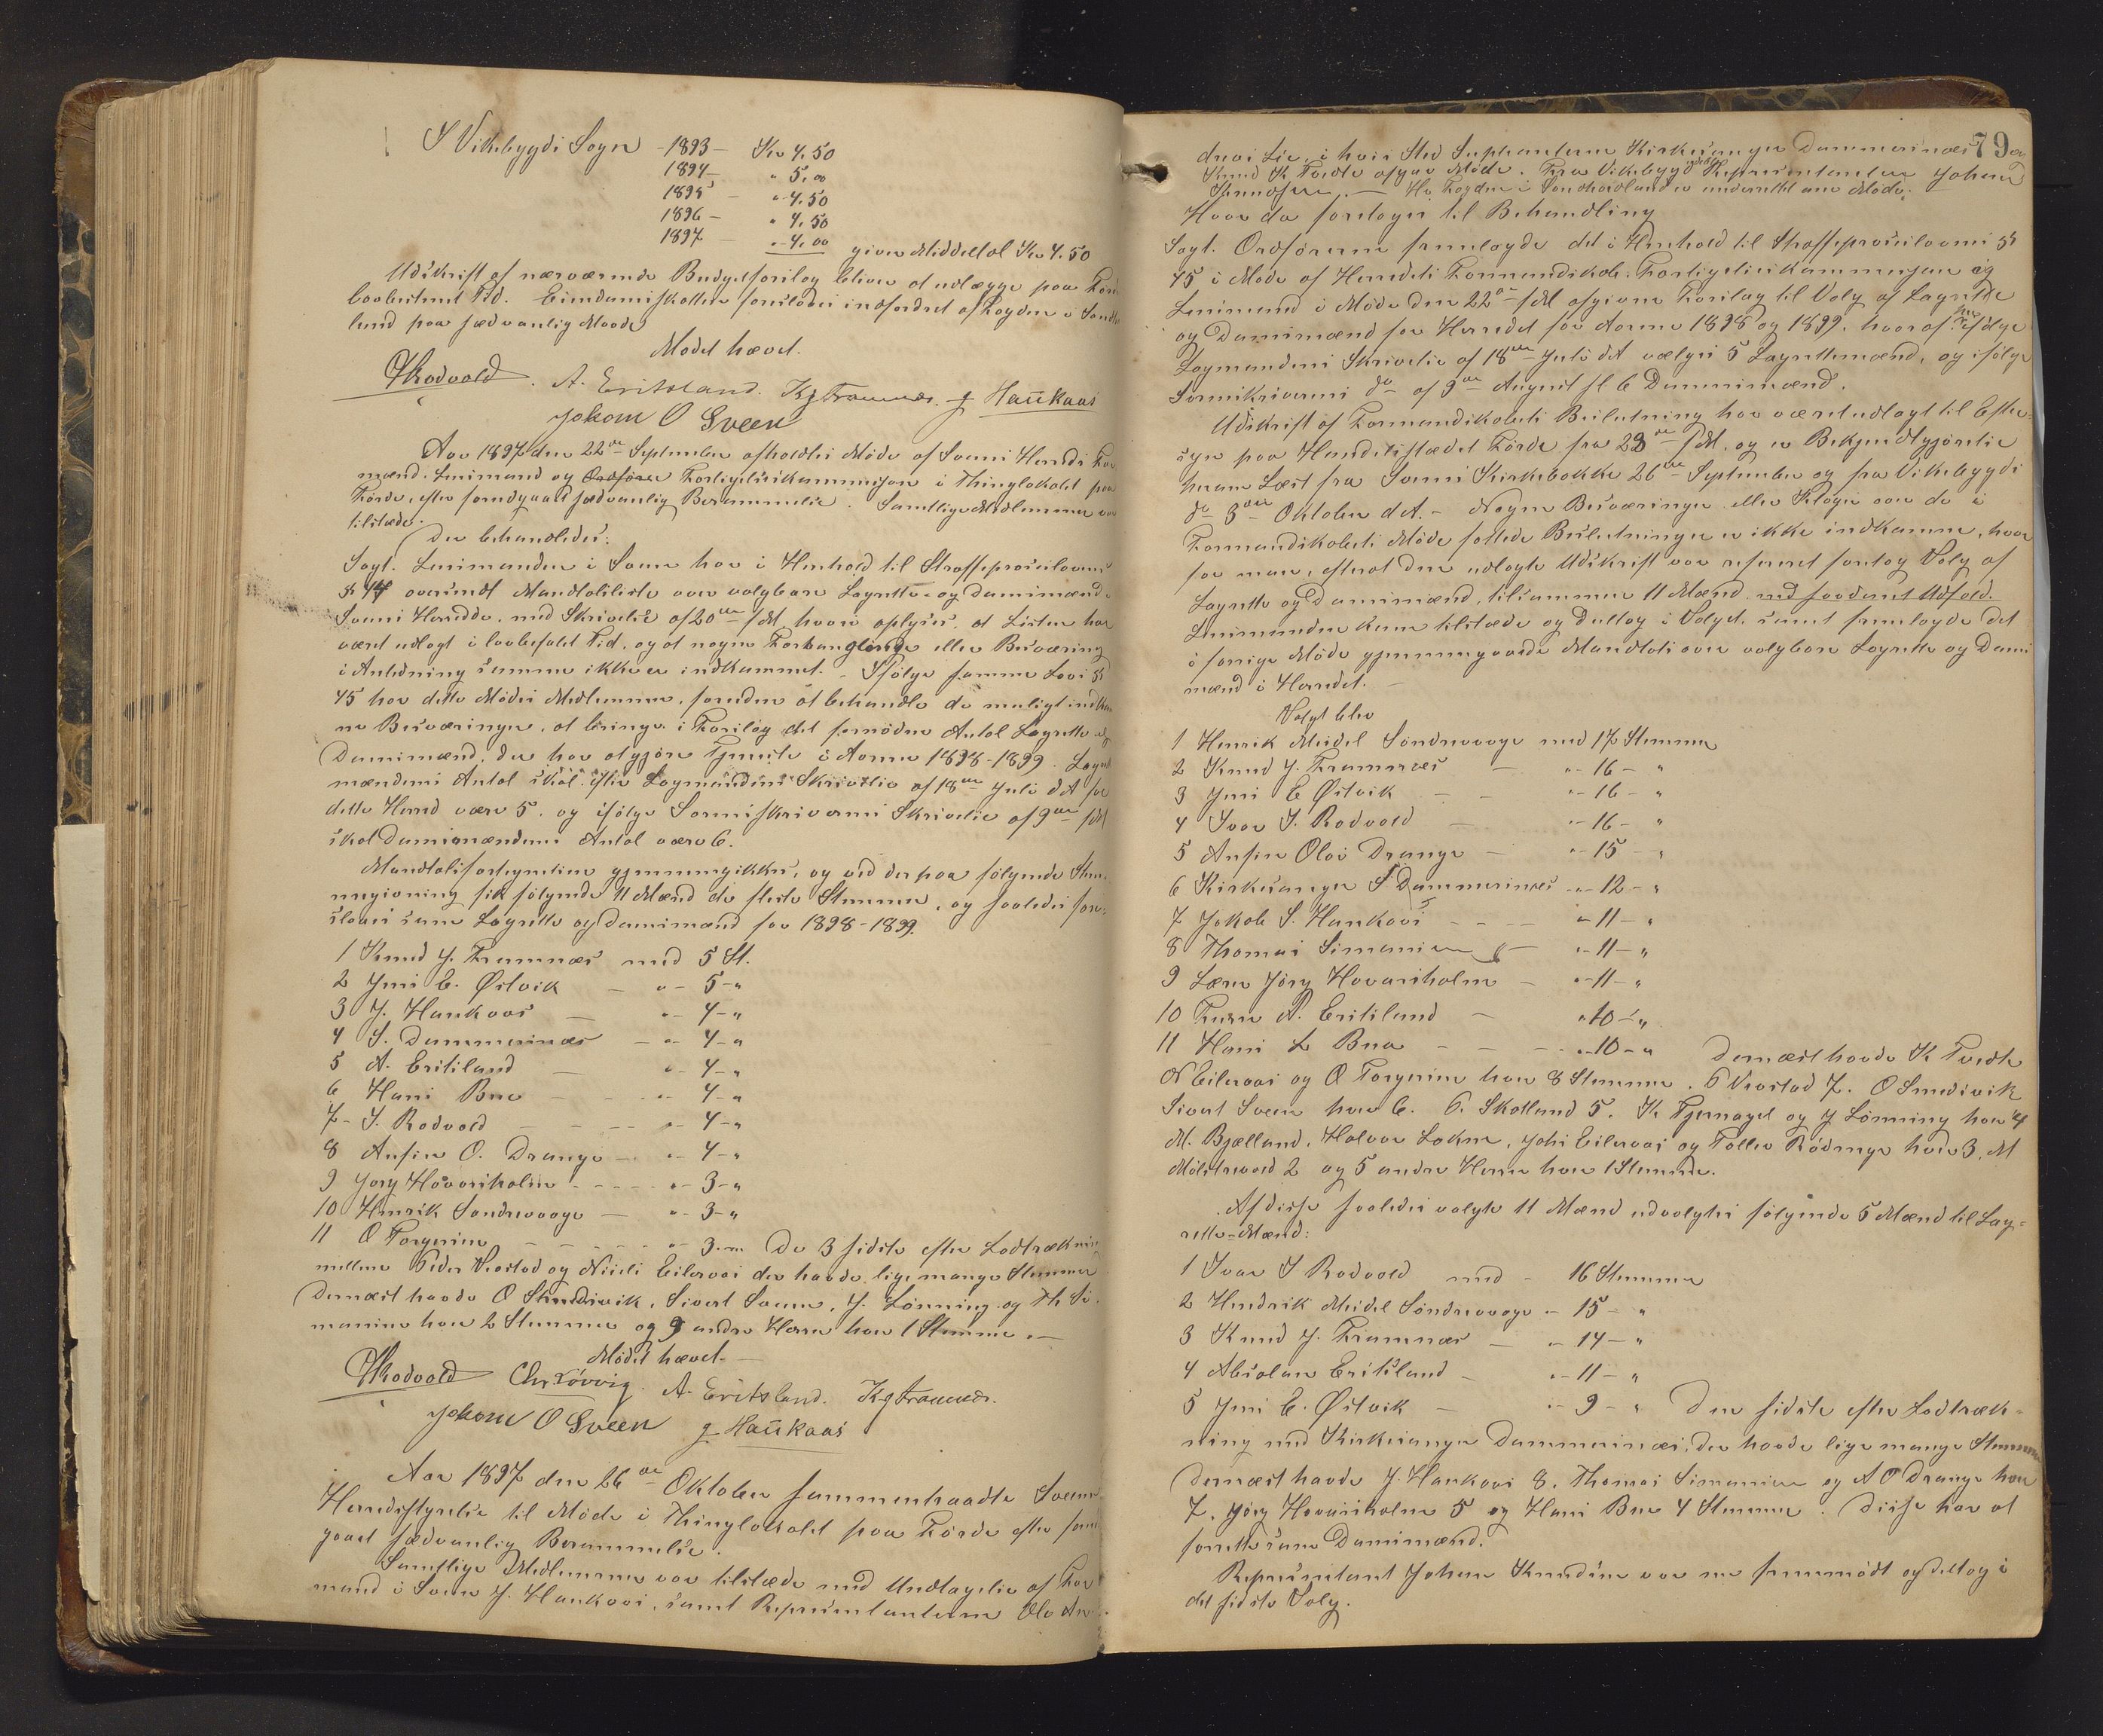 I Vikebygds Sogn - 1893 - Kr 4.50
1894 - " 5.00
1895 - " 4.50
1896 - " 4.50
1897 - " 4.00 giver Middeltal Kr 4.50
Udskrift af nærværende Budgetforslag bliver at udlægge paa
lovbestemt Tid. Eiendomsskatten foreslaaes indfordret af Fogden i
lund paa sædvanlig Maade
Mødet hævet.
Rodvold. A. Eritsland. K J Framnæs. J Haukaas
Johan O Sveen
Aar 1897 den 22de September afholdtes Møde af Sveens Herreds
mænd, Lensmand og Forligelseskommission i Thinglokalet paa
Førde, efter forudgaaet sædvanlig Berammelse. Samtlige Medlemmer var
tilstede.
Der behandledes:
Sag 1. Lensmanden i Sveen har i Henhold til Straffeproceslovens
§ 44 oversendt Mandtalsliste over valgbare Lagrette- og Domsmænd i
Sveens Herred, med Skrivelse af 20de ds M, hvori oplyses, at Listen har
været udlagt i lovbefalet Tid, og at nogen Forbanglende eller Besværing
i Anledning samme ikke er indkommet. - Ifølge samme Lovs §
45 har dette Mødes Medlemmer, foruden at behandle de muligt
ne Besværinger, at bringe i Forslag det fornødne Antal Lagrette og
Domsmænd, der har at gjøre Tjeneste i Aarene 1898-1899.
mændenes Antal skal ifølge Lagmandens Skrivelse af 18de Juli d A for
dette Herred være 5, og ifølge Sorenskriverens Skrivelse af 9de
skal Domsmændenes Antal være 6.
Mandtalsfortegnelsen gjennemgikkes, og ved derpaa følgende
megivning fik følgende 11 Mænd de fleste Stemmer, og saaledes fore-
slaaes som Lagrette og Domsmænd for 1898-1899.
1 Knud J. Framnæs med 5 St.
2 Jens E. Østvik - " - 5 - "
3 J. Haukaas - " - 4 - "
4 S. Dommersnæs - " - 4 - "
5 A. Eritsland - " - 4 - "
6 Hans Bue - " - 4 - "
7 - I. Rodvold - " - 4 - "
8 Ansin O. Drange - " - 4 - "
9 Jørg Hovariholm - " - 3 - "
10 Henrik Søndrevaage - " - 3 - "
11 O Torgersen - " - 3 - " De 3 sidste efter Lodtrækning
mellem Peder Vestad og Niels Eilevaas der havde lige mange Stemmer
Dernæst havde O Smedsvik, Sivert Sveen, J. Lønning og Th Si-
monsen hver 2 Stemmer og 9 andre Herrer hver 1 Stemme. -
Mødet hævet. -
Rodvold Chr Løvvig. A. Eritsland. K J Framnæs.
Johan O Sveen J Haukaas
Aar 1897 den 26de Oktober sammentraadte Sveens
Herredsstyrelse til Møde i Thinglokalet paa Førde efter
gaaet sædvanlig Berammelse.
Samtlige Medlemmer var tilstede med Undtagelse af For-
mand i Sveen J. Haukaas, samt Repræsentanterne Ole
79
dreas Lie, i hvis Sted Suppleanterne Kirkesanger Dommersnæs og
Knud K Tveite afgav Møde. Fra Vikebygd Repræsentanten Johan
Knudsen. - Hr. Fogden i Søndhordland er underrettet om Møde.
Hvor da foretoges til Behandling
Sag 1. Ordføreren fremlagde det i Henhold til Straffeproceslovens §
45 i Møde af Herredets Formandskab, Forligelseskommission og
Lensmand i Møde den 22de ds M afgivne Forslag til Valg af Lagrette
og Domsmænd for Herredet for Aarene 1898 og 1899, hvoraf ifølge
Lagmandens Skrivelse af 18de Juli d A vælges 5 Lagrettemænd, og ifølge
Sorenskriverens do af 9de August sl 6 Domsmænd.
Udskrift af Formandskabets Beslutning har været udlagt til Efter-
syn paa Herredstistedet Førde fra 28de f M, og er Bekjendtgjørelse
herom læst fra Sveens Kirkebakke 26de September og fra Vikebygds
do 3die Oktober d A. - Nogen Besværinger eller Klager over de i
Formandskabets Møde fattede Beslutninger er ikke indkomne, hvor
for man, efterat den udlagte Udskrift var refereret foretog Valg af
Lagrette og Domsmænd, tilsammen 11 Mænd med saadant Udfald.
Lensmanden kom tilstede og deltog i Valget, samt fremlagde det
i forrige Møde gjennemgaaede Mandtal over valgbare Lagrette og Doms
mænd i Herredet. -
Valgt blev
1 Henrik Meidel Søndrevaage med 17 Stemmer
2 Knud J. Framnæs - " - 16 - "
3 Jens E Østvik - - " - 16 - "
4 Ivar I. Rodvold - " - 16 - "
5 Ansin Olai Drange - " - 15 - "
6 Kirkesanger S Dommersnæs - " - 12 - "
7 Jakob S. Haukaas - - - " - 11 - "
8 Thomas Simonsen - " - 11 - "
9 Lærer Jørg Hovariholm - " - 11 - "
10 A. Eritsland - " 10 - "
11 Hans L Bue - - - " - 10 - " Dernæst havde K Tveite
N Eilevaas og O Torgersen hver 8 Stemmer. P Vestad 7. O Smedsvik
Sivert Sveen hver 6. O. Skotland 5. K. Tjernagel og J Lønning hver 4
M. Bjælland, Halvor Lokne, Johs Eilevaas og Tollev Rødinge hver 3, M
Mølstrevold 2 og 5 andre Herrer hver 1 Stemme.
Af disse saaledes valgte 11 Mænd udvalgtes følgende 5 Mænd til Lag-
rette-Mænd:
1 Ivar I Rodvold med - 16 Stemmer
2 Hendrik Meidel Søndrevaage - 15 - "
3 Knud J. Framnæs - " - 14 - "
4 Absolon Eritsland - " - 11 - "
5 Jens E. Østvik - " - 9 - " Den sidste efter Lodtræk-
ning med Kirkesanger Dommersnæs, der havde lige mange Stemmer
Dernæst havde J. Haukaas 8, Thomas Simonsen og A O Drange hver
7, Jørg Hovariholm 5 og Hans Bue 4 Stemmer. Disse har at
forrette som Domsmænd.
Repræsentant Johan Knudsen var nu fremmødt og deltog i
det sidste Valg.